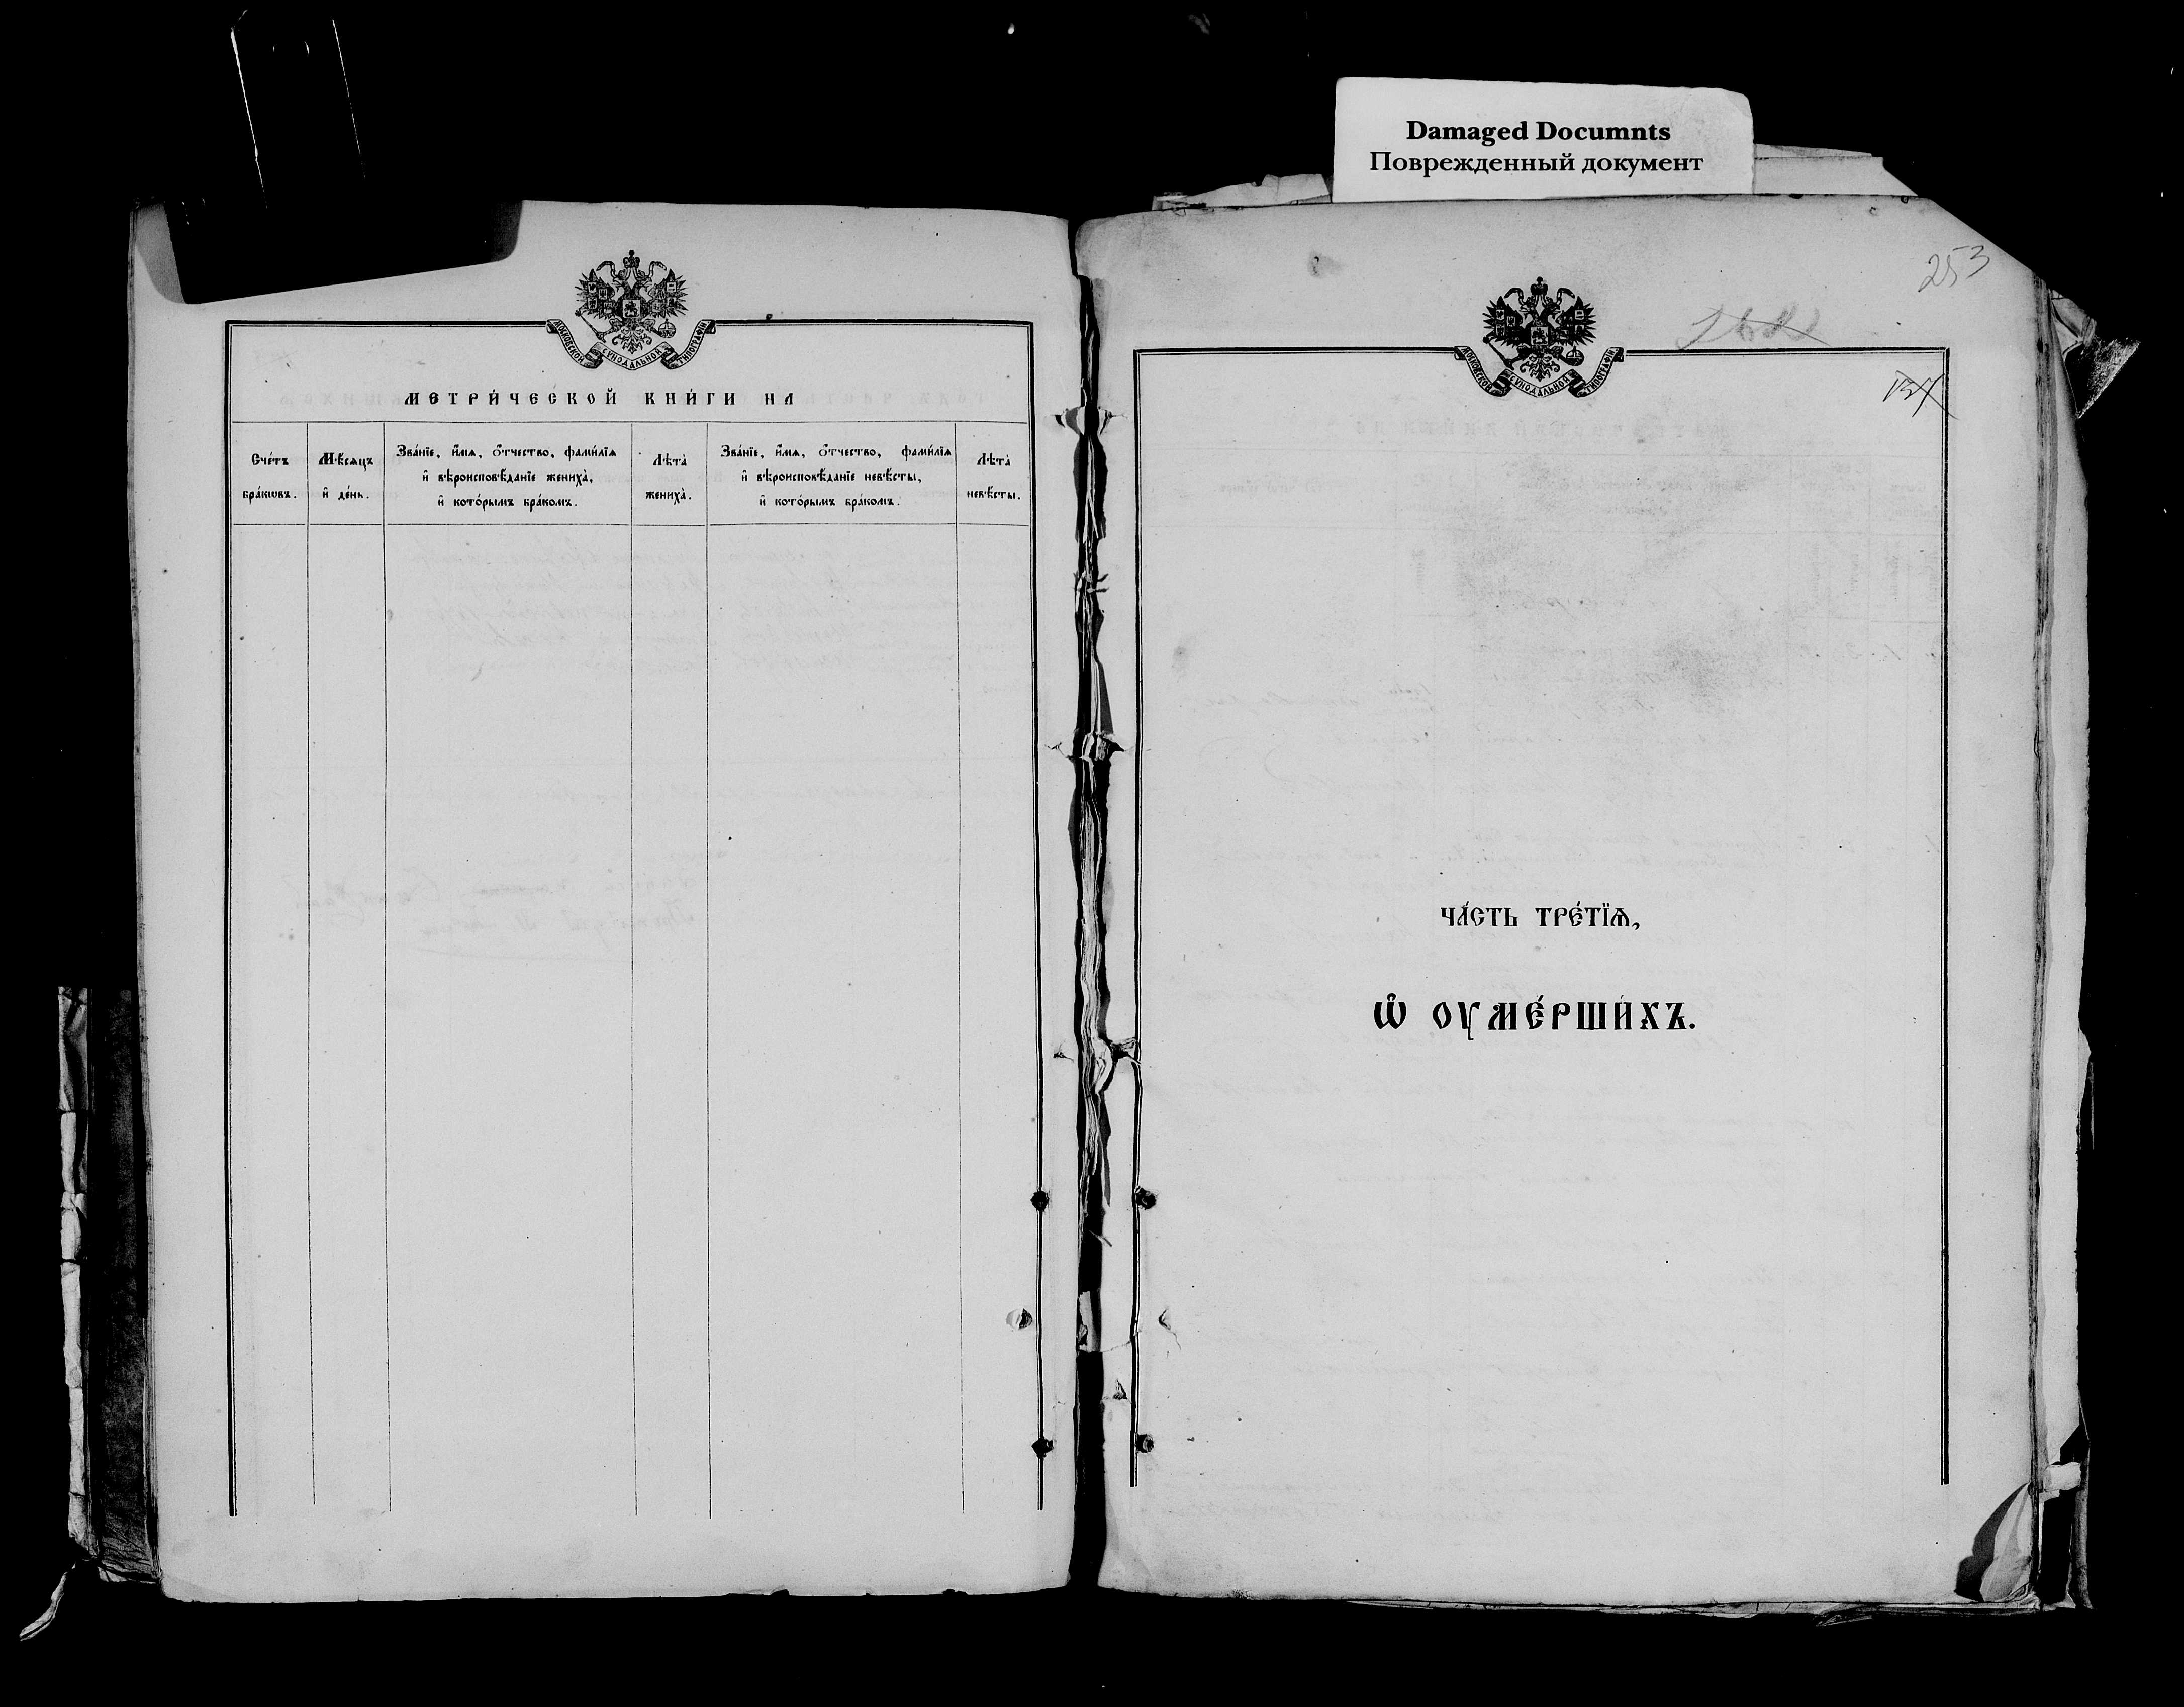 Damaged Documnts
Поврежденный документ
МОСКОВСКОЙ СѴНОДАЛЬНОЙ ТИПОГРАФІИ
МЕТРИ́ЧЕСКОЙ КНИ́ГИ НА
Сче́тъ бра́кωвъ.
Мѣ́сяцъ и҆ де́нь.
Зва́нїе, и҆́мѧ, ѻ҆́тчество, фами́лїѧ
и҆ вѣроисповѣ́данїе жениха̀,
и҆ кото́рымъ бра́комъ.
Лѣта̀ жениха̀.
Зва́нїе, и҆́мѧ, ѻ҆́тчество, фами́лїѧ
и҆ вѣроисповѣ́данїе невѣ́сты,
и҆ кото́рымъ бра́комъ.
Лѣта̀ невѣ́сты.
253
МОСКОВСКОЙ СѴНОДАЛЬНОЙ ТИПОГРАФІИ
ЧА́СТЬ ТРЕ́ТЇѦ,
Ѽ ОУМЕ́РШИХЪ.